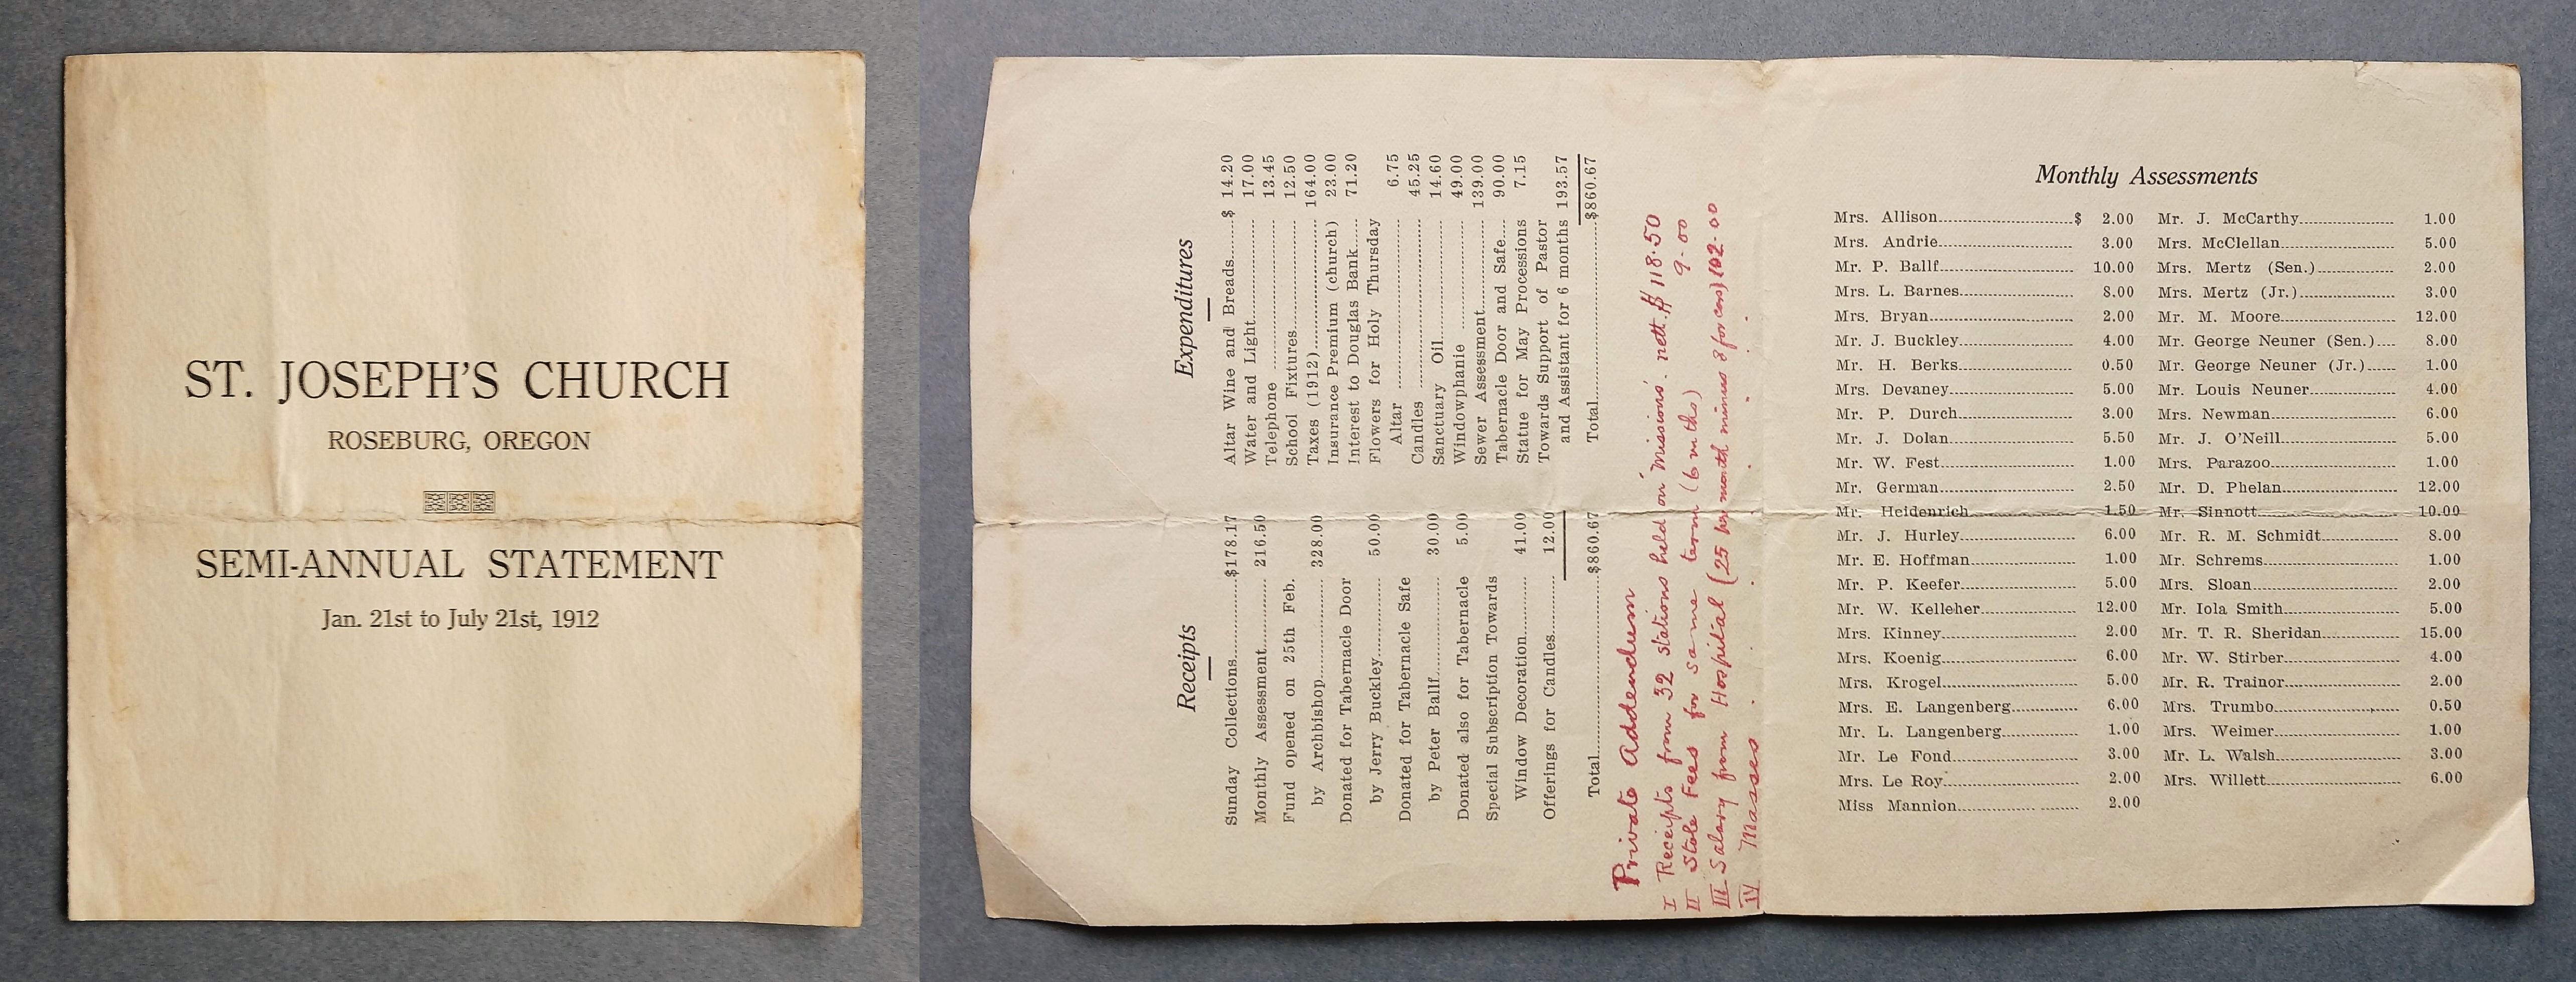 ST. JOSEPH'S CHURCH
ROSEBURG, OREGON
SEMI-ANNUAL STATEMENT
Jan. 21st to July 21st, 1912
Receipts
Sunday Collections $178.17
Monthly Assessment 216.50
Fund opened on 25th Feb.
by Archbishop 328.00
Donated for Tabernacle Door
by Jerry Buckley 50.00
Donated for Tabernacle Safe
by Peter Ballf 30.00
Donated also for Tabernacle 5.00
Special Subscription Towards
Window Decoration 41.00
Offerings for Candles 12.00
Total $860.67
Expenditures
Altar Wine and Breads $ 14.20
Water and Light 17.00
Telephone 13.45
School Fixtures 12.50
Taxes (1912) 164.00
Insurance Premium (church) 23.00
Interest to Douglas Bank 71.20
Flowers for Holy Thursday
Altar 6.75
Candles 45.25
Sanctuary Oil 14.60
Windowphanie 49.00
Sewer Assessment 139.00
Tabernacle Door and Safe 90.00
Statue for May Processions 7.15
Towards Support of Pastor
and Assistant for 6 months 193.57
Total $860.67
Private Addendum
I Receipts from 32 stations held on 'missions'. nett. $118.50
II Stole Fees for same term (6 mths) 9.00
III Salary from Hospital (25 per month minus 8 for cons) 102.00
IV Masses
Monthly Assessments
Mrs. Allison $ 2.00
Mrs. Andrie 3.00
Mr. P. Ballf 10.00
Mrs. L. Barnes 8.00
Mrs. Bryan 2.00
Mr. J. Buckley 4.00
Mr. H. Berks 0.50
Mrs. Devaney 5.00
Mr. P. Durch 3.00
Mr. J. Dolan 5.50
Mr. W. Fest 1.00
Mr. German 2.50
Mr. Heidenrich 1.50
Mr. J. Hurley 6.00
Mr. E. Hoffman 1.00
Mr. P. Keefer 5.00
Mr. W. Kelleher 12.00
Mrs. Kinney 2.00
Mrs. Koenig 6.00
Mrs. Krogel 5.00
Mrs. E. Langenberg 6.00
Mr. L. Langenberg 1.00
Mr. Le Fond 3.00
Mrs. Le Roy 2.00
Miss Mannion 2.00
Mr. J. McCarthy 1.00
Mrs. McClellan 5.00
Mrs. Mertz (Sen.) 2.00
Mrs. Mertz (Jr.) 3.00
Mr. M. Moore 12.00
Mr. George Neuner (Sen.) 8.00
Mr. George Neuner (Jr.) 1.00
Mr. Louis Neuner 4.00
Mrs. Newman 6.00
Mr. J. O'Neill 5.00
Mrs. Parazoo 1.00
Mr. D. Phelan 12.00
Mr. Sinnott 10.00
Mr. R. M. Schmidt 8.00
Mr. Schrems 1.00
Mrs. Sloan 2.00
Mr. Iola Smith 5.00
Mr. T. R. Sheridan 15.00
Mr. W. Stirber 4.00
Mr. R. Trainor 2.00
Mrs. Trumbo 0.50
Mrs. Weimer 1.00
Mr. L. Walsh 3.00
Mrs. Willett 6.00